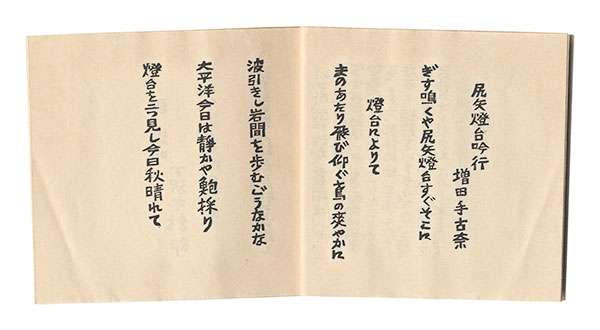 尻矢燈台吟行
増田手古奈
ぎす鳴くや尻矢燈台すぐそこに
燈台によりて
まのあたり飛び仰ぐ鳶の爽やかに
波引きし岩間を歩むごうなかな
太平洋今日は静かや鮑採り
燈台を三つ見し今日秋晴れて